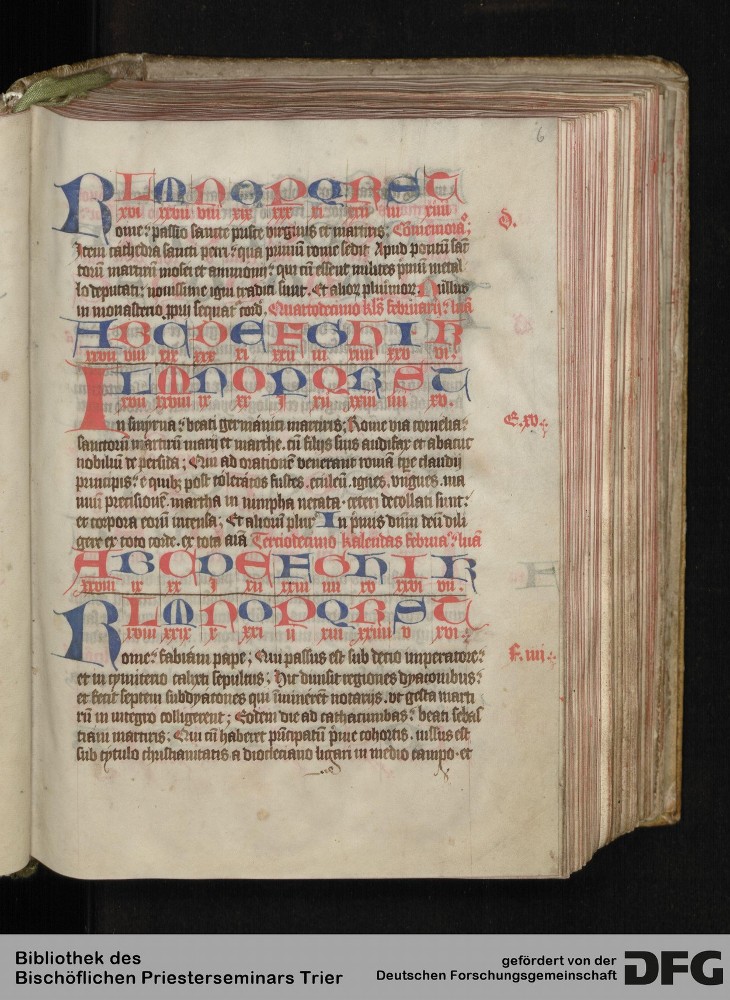 6
L M N O P Q R S T
xvi xxvii viii xix xxx xi xxii iii xiiii
Rome: passio sancte prisce virginis et martiris; Comemoracō;
D.
Item cathedra sancti petri: qua primū rome sedit Apud pontū sāc
torū martirū mosei et ammonii: qui cū essent milites primū metal
lo deputati: nouissime igni traditi sunt. Et alior plurimor Nullus
in monasterio pprii sequat cord. Quartodecimo kls februarij: luā
A B C D E F G H I K
xxvii viii xix xxx xi xxii iii xiiii xxv vi.
L M N O P Q R S T
xvii xxviii ix xx i xii xxiii iiii xv.
In smyrna: beati germanici martiris; Rome via cornelia:
E. xv.
sanctorū martirū marii et marthe. cū filijs suis audifax et abacuc
nobiliū de persida; Qui ad orationē venerant romā tpe claudii
principis: e quib; post toleratos fustes. eculeū. ignes. vngues. ma
nuū precisionē. martha in nimpha necata. ceteri decollati sunt:
et corpora eorū incensa; Et aliorū plur In primis dnm deū dili
gere ex toto corde. ex tota aīa Terciodecimo kalendas februa: luā
A B C D E F G H I K
xxviii ix xx i xii xxiii iiii xv xxvi vii.
L M N O P Q R S T
xviii xxix x xxi ii xiii xxiiii v xvi.
Rome: fabiani pape; Qui passus est sub decio imperatore:
F. iiij
et in cymiterio calixti sepultus; Hic diuisit regiones dyaconibus:
et fecit septem subdyacones qui īminerēt notarijs. vt gesta marti
rū in integro colligerent; Eodem die ad cathacumbas: beati sebas
tiani martiris; Qui cū haberet prīcipatū prime cohortis. iussus est
sub tytulo christianitatis a diocleciano ligari in medio campo. et
Bibliothek des
Bischöflichen Priesterseminars Trier
gefördert von der
Deutschen Forschungsgemeinschaft
DFG